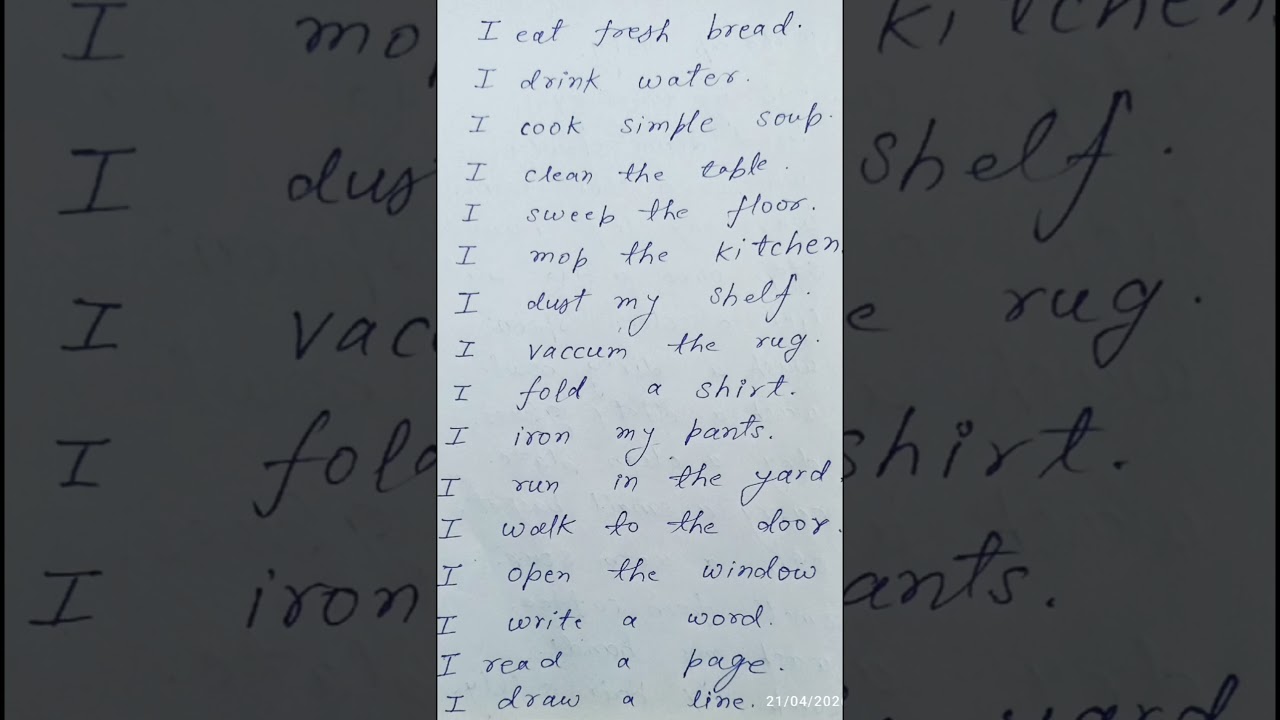 I eat fresh bread.
I drink water.
I cook simple soup.
I clean the table.
I sweep the floor.
I mop the kitchen.
I dust my shelf.
I vaccum the rug.
I fold a shirt.
I iron my pants.
I run in the yard
I walk to the door.
I open the window
I write a word.
I read a page.
I draw a line.
21/04/202